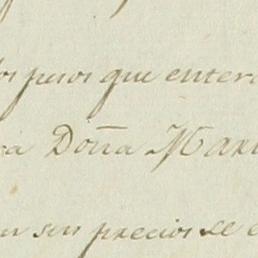 los pesos que entera
ra Doña Mari
en sus precios se e